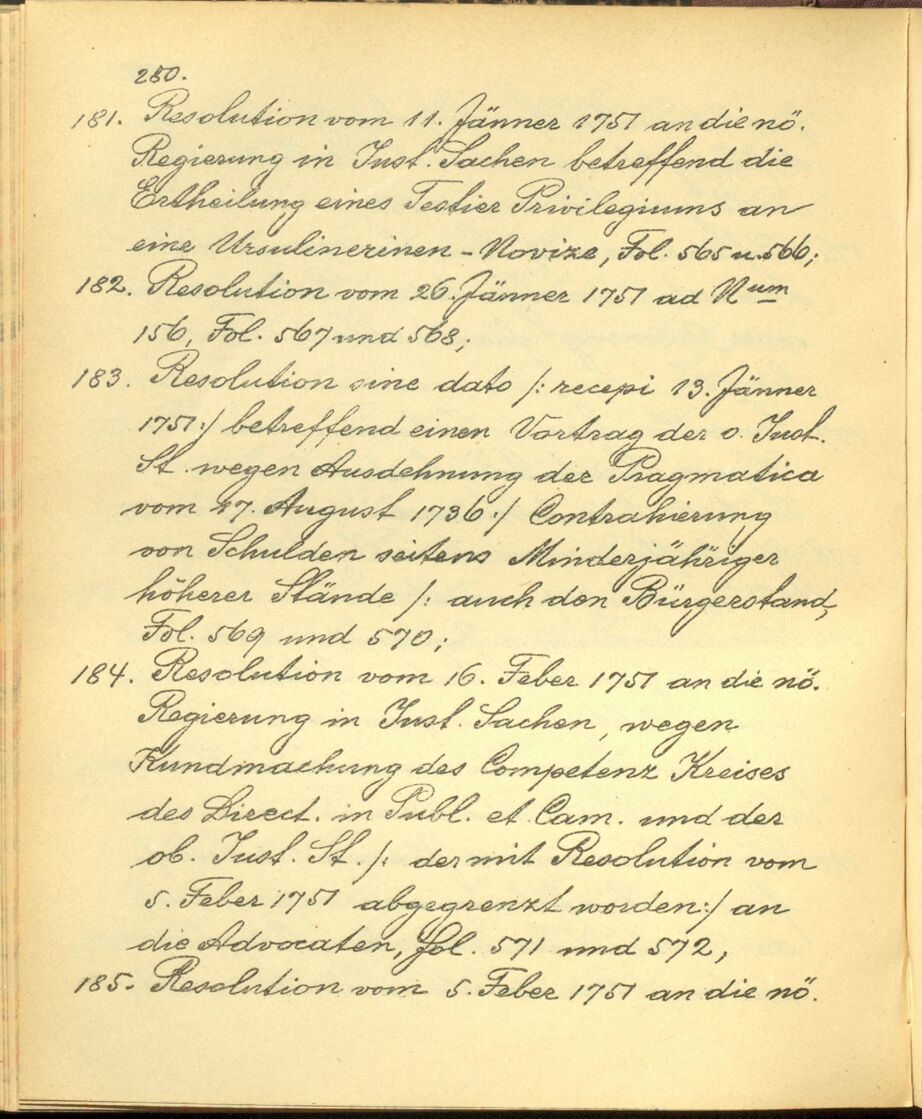 280.
181. Resolution vom 11. Jänner 1751 an die nö.
Regierung in Just. Sachen betreffend die
Ertheilung eines Testier Privilegiums an
eine Ursulinerinen - Novize, Fol. 565 u. 566;
182. Resolution vom 26. Jänner 1751 ad Num
156, Fol. 567 und 568;
183. Resolution sine dato /: recepi 13. Jänner
1751 :/ betreffend einen Vortrag der o. Just.
St. wegen Ausdehnung der Pragmatica
vom 27. August 1736 :/ Contrahierung
von Schulden seitens Minderjähriger
höherer Stände /: auch den Bürgerstand,
Fol. 569 und 570;
184. Resolution vom 16. Feber 1751 an die nö.
Regierung in Just. Sachen, wegen
Kundmachung des Competenz Kreises
des Direct. in Publ. et Cam. und der
ob. Just. St. /: der mit Resolution vom
5. Feber 1751 abgegrenzt worden :/ an
die Advocaten, fol. 571 und 572,
185. Resolution vom 5. Feber 1751 an die nö.